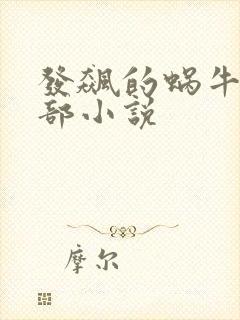 發飆的蝸牛
部小說
摩尔